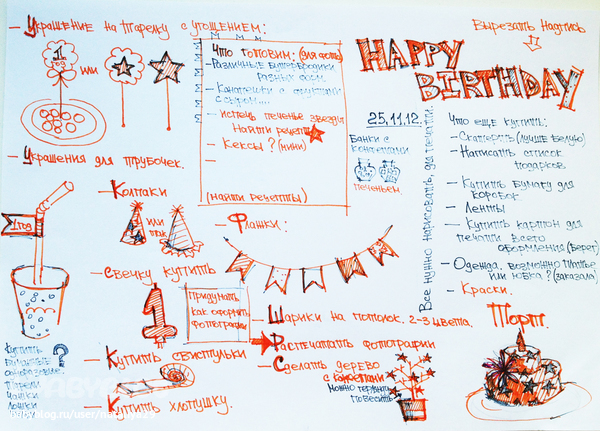 – Украшение на тарелку с угощением:
1
год
или
Что готовим: (для фото)
– Различные бутербродики
разных форм.
– Канапешки с фруктами
с сыром....
– испечь печенье звезды
Найти рецепт
– Кексы? (мини)
–
(найти рецепты)
Вырезать надпись
HAPPY
BIRTHDAY
25.11.12.
Банки с
конфетами
Печеньем
Все нужно нарисовать, для печати.
Что еще купить:
– Скатерть (лучше белую)
– Написать список
подарков
– Купить бумагу для
коробок
– Ленты
– Купить картон для
печати всего
оформления (Берег)
– Одежда, возможно платье
или юбка? (заказала)
– Краски.
– Украшения для трубочек.
1 год
– Колпаки
или
так
– Флажки:
– Свечку купить
1
Придумать
как оформить
фотографии
– Шарики на потолок. 2-3 цвета.
– Распечатать фотографии
– Сделать дерево
с конфетами
можно гирлянду
повесить
Торт.
– Купить свистульки
– Купить хлопушку.
Купить
бумажные
одноразовые
тарелки
чашки
ложки
?